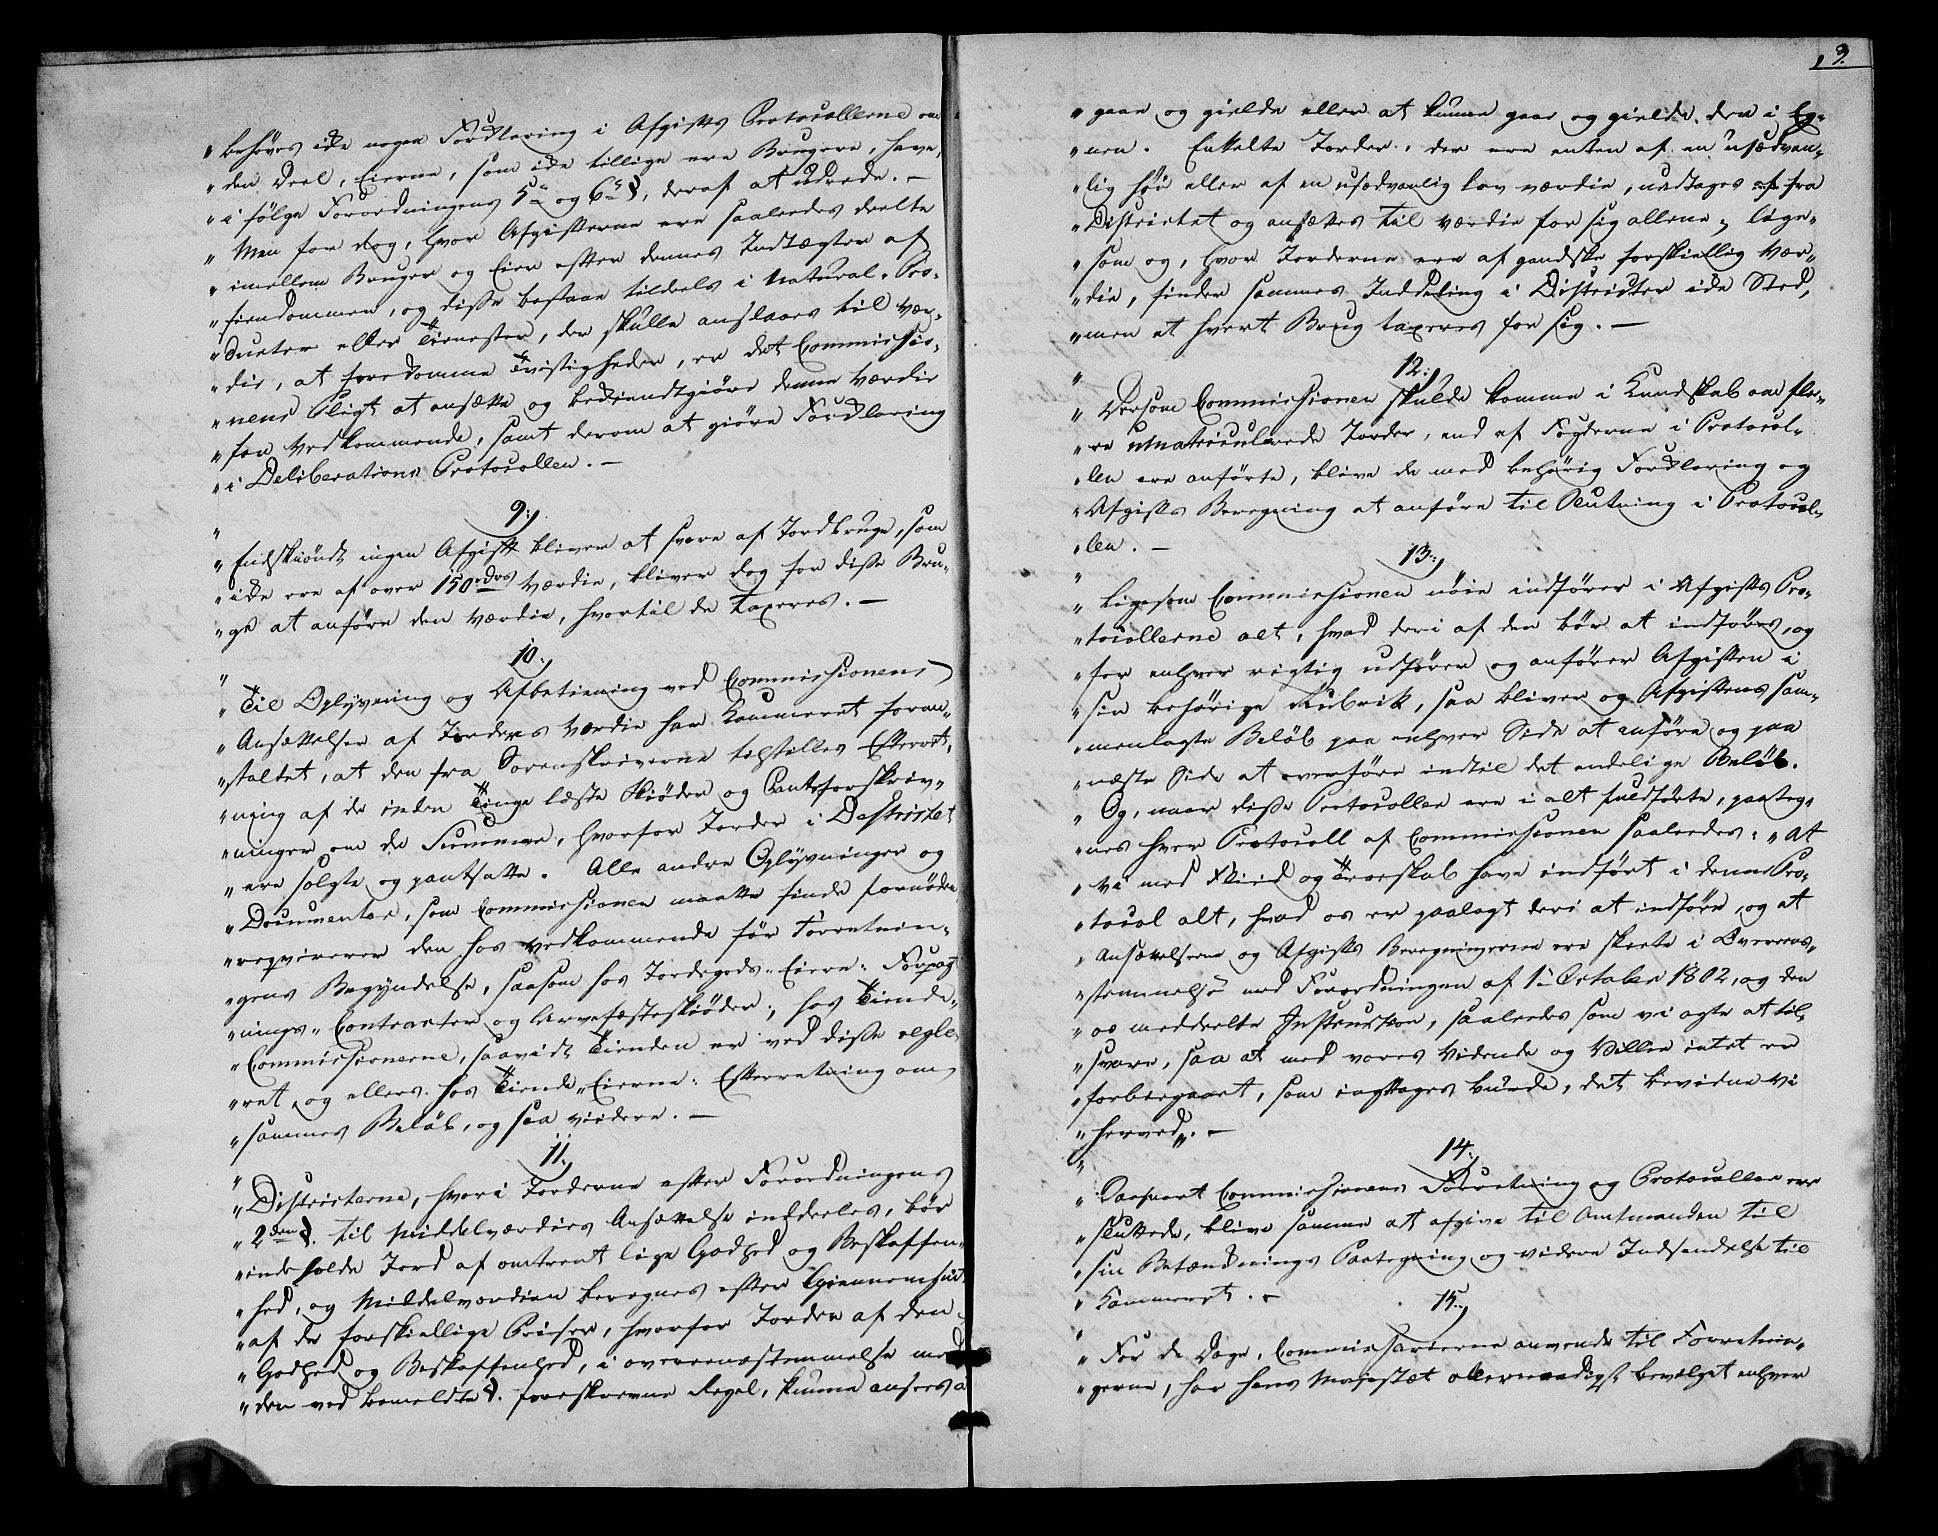 " behøves icke nogen Forklaring i Afgifts Protocollerne om
" den Deel, Eierne, som icke tillige ere Brugere, have,
" i følge Forordningens 5te og 6te §, deraf at udrede. —
" Men for dog, hvor Afgifterne ere saaledes deelte
" imellem Bruger og Eier efter dennes Indtægter af
" Eiendommen, og disse bestaae tildeels i Natural-Pro-
" ducter eller Tienester, der skulle anslaaes til Vær-
" die, at forekomme Tvistigheder, er det Commissio-
" nens Pligt at ansætte og bekiendtgiøre denne Værdie
" for Vedkommende, samt derom at giøre Forklaring
" i Deliberations Protocollen. —
9.
" Endskiøndt ingen Afgift bliver at svare af Jordbruge, som
" icke ere af over 150 rdrs Værdie, bliver dog for disse Bru-
" ge at anføre den Værdie, hvortil de taxeres. —
10.
" Til Oplysning og Afbetiening ved Commissionens
" Ansættelser af Jorders Værdie har Kammeret foran-
" staltet, at den fra Sorenskriverne tilstilles Efterret-
" ning af de inden Tinge læste Skiøder og Panteforskriv-
" ninger om de Summer, hvorfor Jorder i Districtet
" ere solgte og pantsatte. Alle andre Oplysninger og
" Documenter, som Commissionen maatte finde fornødne
" reqvirerer den hos Vedkommende før Forretnin-
" gens Begyndelse, saasom hos Jordegods-Eiere: Forpagt
" nings-Contracter og Arvefæsteskiøder; hos Tiende-
" Commissionerne, saavidt Tienden er ved disse regle-
" ret, og ellers hos Tiende-Eierne: Efterretning om
" sammes Beløb, og saa videre. —
11.
" Districterne, hvori Jorderne efter Forordningens
" 2den §. til Middelværdies Ansættelse inddeeles, bør
" indeholde Jord af omtrent lige Godhed og Beskaffen-
" hed, og Middelværdien beregnes efter Giennemsnit
" af de forskiellige Priser, hvorfor Jorder af den
" Godhed og Beskaffenhed, i overeensstemmelse med
" den ved bemeldte §. foreskrevne Regel, kunne ansees at
9.
" gaae og gielde eller at kunne gaae og gielde der i Eg-
" nen. Enkelte Jorder, der ere enten af en usædvan-
" lig høi eller af en usædvanlig lav værdie, undtages fra
" Districtet og ansættes til værdie for sig allene; lige-
" som og, hvor Jorderne ere af gandske forskiellig Vær-
" die, finder sammes Inddeling i Districter icke Sted,
" men at hvert Brug taxeres for sig. —
12.
" Dersom Commissionen skulde komme i Kundskab om fle-
" re umatriculerede Jorder, end af Fogderne i Protocol-
" len ere anførte, blive de med behørig Forklaring og
" Afgifts Beregning at anføre til Slutning i Protocol-
" len. —
13.
" Ligesom Commissionen nøie indfører i Afgifts Pro-
" tocollerne alt, hvad deri af den bør at indføres, og
" for enhver rigtig udfører og anfører Afgiften i
" sin behørige Rubrik, saa bliver og Afgiftens sam-
" menlagte Beløb paa enhver Side at anføre og paa
" næste Side at overføre indtil det endelige Beløb.
" Og, naar disse Protocoller ere i alt fuldførte, paateg-
" nes hver Protocoll af Commissionen saaledes: " At
" vi med Fliid og Troeskab have indført i denne Pro-
" tocol alt, hvad os er paalagt deri at indføre, og at
" Ansættelserne og Afgifts Beregningerne ere skeete i Overeens-
" stemmelse med Forordningen af 1te October 1802, og den
" os meddeelte Instruction, saaledes som vi agte at til-
" svare, saa at med vores Vidende og Villie intet er
" forbiegaaet, som iagttages burde, det bevidne vi
" herved". —
14.
" Saasnart Commissionens Forretning og Protocoller ere
" sluttede, blive samme at afgive til Amtmanden til
" sin Betænknings Paategning og videre Indsendelse til
" Kammeret. —
15.
" For de Dage, Commissarierne anvende til Forretnin-
" gerne, har Hans Majestæt allernaadigst bevilget enhver